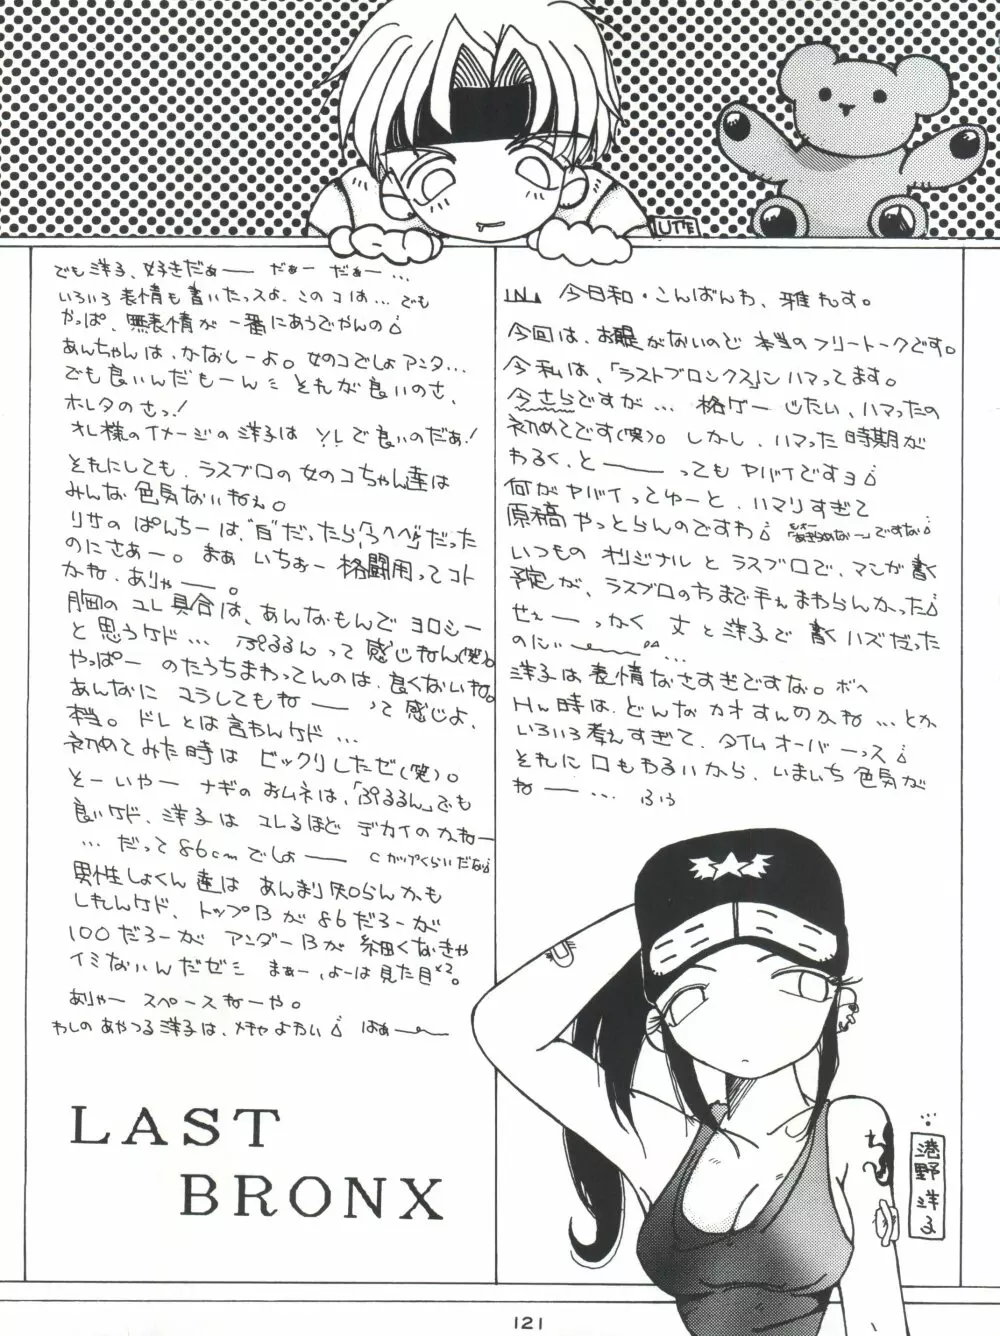 UTE
今日和・こんばんわ、雅れす。
今回は、お題がないので 本当のフリートークです。
今私は、「ラストブロンクス」にハマってます。
今さらですが… 格ゲーじたい、ハマったの
初めてです(笑)。しかし、ハマった時期が
わるく、と―――ってもヤバイですヨ
何がヤバイってゆーと、ハマりすぎて
原稿やっとらんのですわ 「あきらめな〜」ですな
いつもの オリジナル と ラスブロで、マンガ書く
予定が、ラスブロの方まで手ぇまわらんかった
せぇ――っかく 丈と洋子で書くハズだった
のにぃ〜…
洋子は表情なさすぎですな。ボヘ
Hん時は、どんなカオすんのかね…とか
いろいろ考えすぎて、タイムオーバーっス
それに口もわるいから、いまいち色気が
ね――… ふぅ
でも洋子、好きだぁ―― だぁー だぁー…
いろいろ表情も書いたっスよ、このコは…でも
やっぱ、無表情が一番にあうでやんの
あんちゃんは、かなしーよ。女のコでしょアンタ…
でも良いんだもーんミ それが良いのさ、
ホレタのさっ!
オレ様のイメージの洋子は ソレで良いのだぁ!
それにしても、ラスブロの女のコちゃん達は
みんな色気ないねぇ。
リサのぱんちーは、"白"だったら
のにさあー。まぁ いちおー 格闘用ってコト
かね、ありゃ――。
胸のユレ具合は、あんなもんでヨロシー
と思うケド… ぷるるんって感じねん(笑)。
やっぱー のたうちまわってんのは、良くないね。
あんなに ユラしてもねー―って感じよ、
本当。ドレとは言わんケド…
初めてみた時は ビックリしたゼ(笑)。
とーいやー ナギのおムネは、「ぷるるん」でも
良いケド、洋子は ユレるほど デカイのかねー
…だって86cmでしょ―― Cカップくらいだな
男性しょくん達は あんまり知らんかも
しれんケド、トップBが86だろーが
100だろーが アンダーBが細くなきゃ
イミないんだゼミ まぁー、よーは見た目×2。
ありゃー スペースねーや。
わしのあやつる洋子は、メチャよわい はぁ――
LAST
BRONX
港野洋子
121